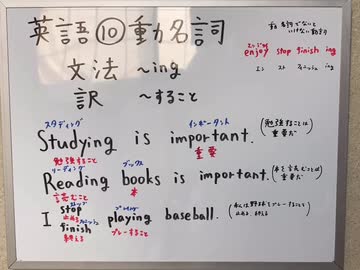 英語⑩動名詞
動名詞でないと
いけない動詞
エンジョイ
enjoy stop finish ing
エン スト フィニッシュ ing
文法 ~ing
訳 ~すること
スタディング インポータント
Studying is important. (勉強することは
重要だ)
勉強すること 重要
リーディング ブックス
Reading books is important. (本を読むことは
重要だ)
読むこと 本
I stop playing baseball. (私は野球をプレーすることを
止める、終える)
ストップ プレイング
止める フィニッシュ
finish プレーすること
終える